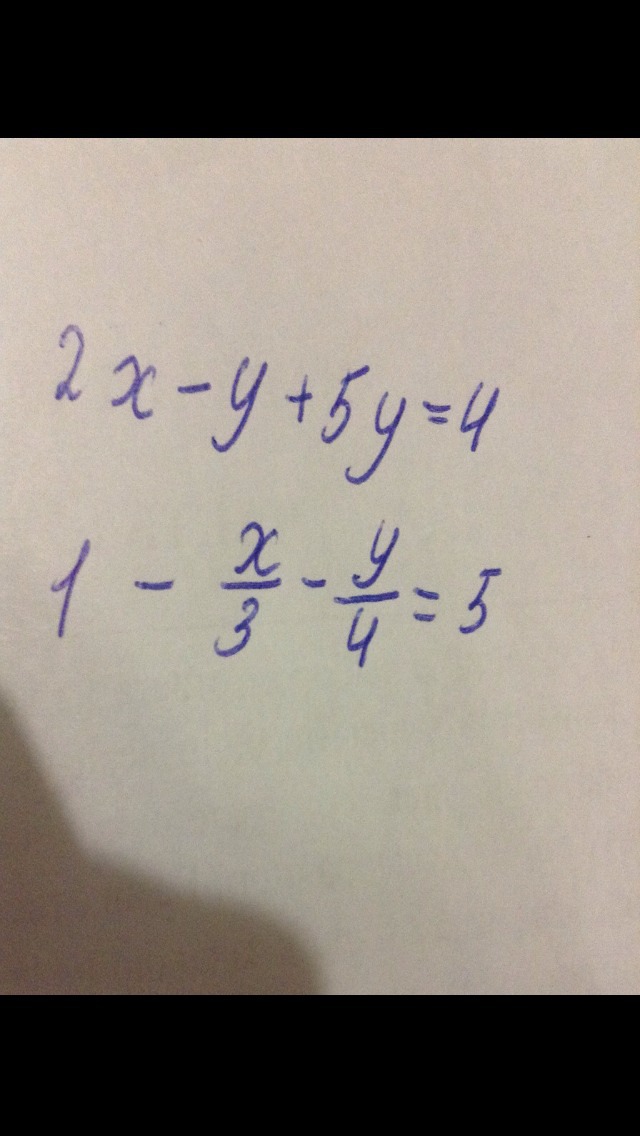 2x - y + 5y = 4
1 - x/3 - y/4 = 5